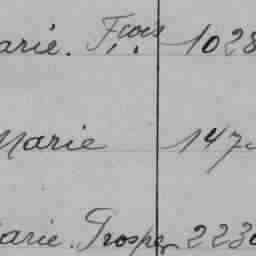 arie. Fçois 1028
Marie 147
arie. Prosper 223